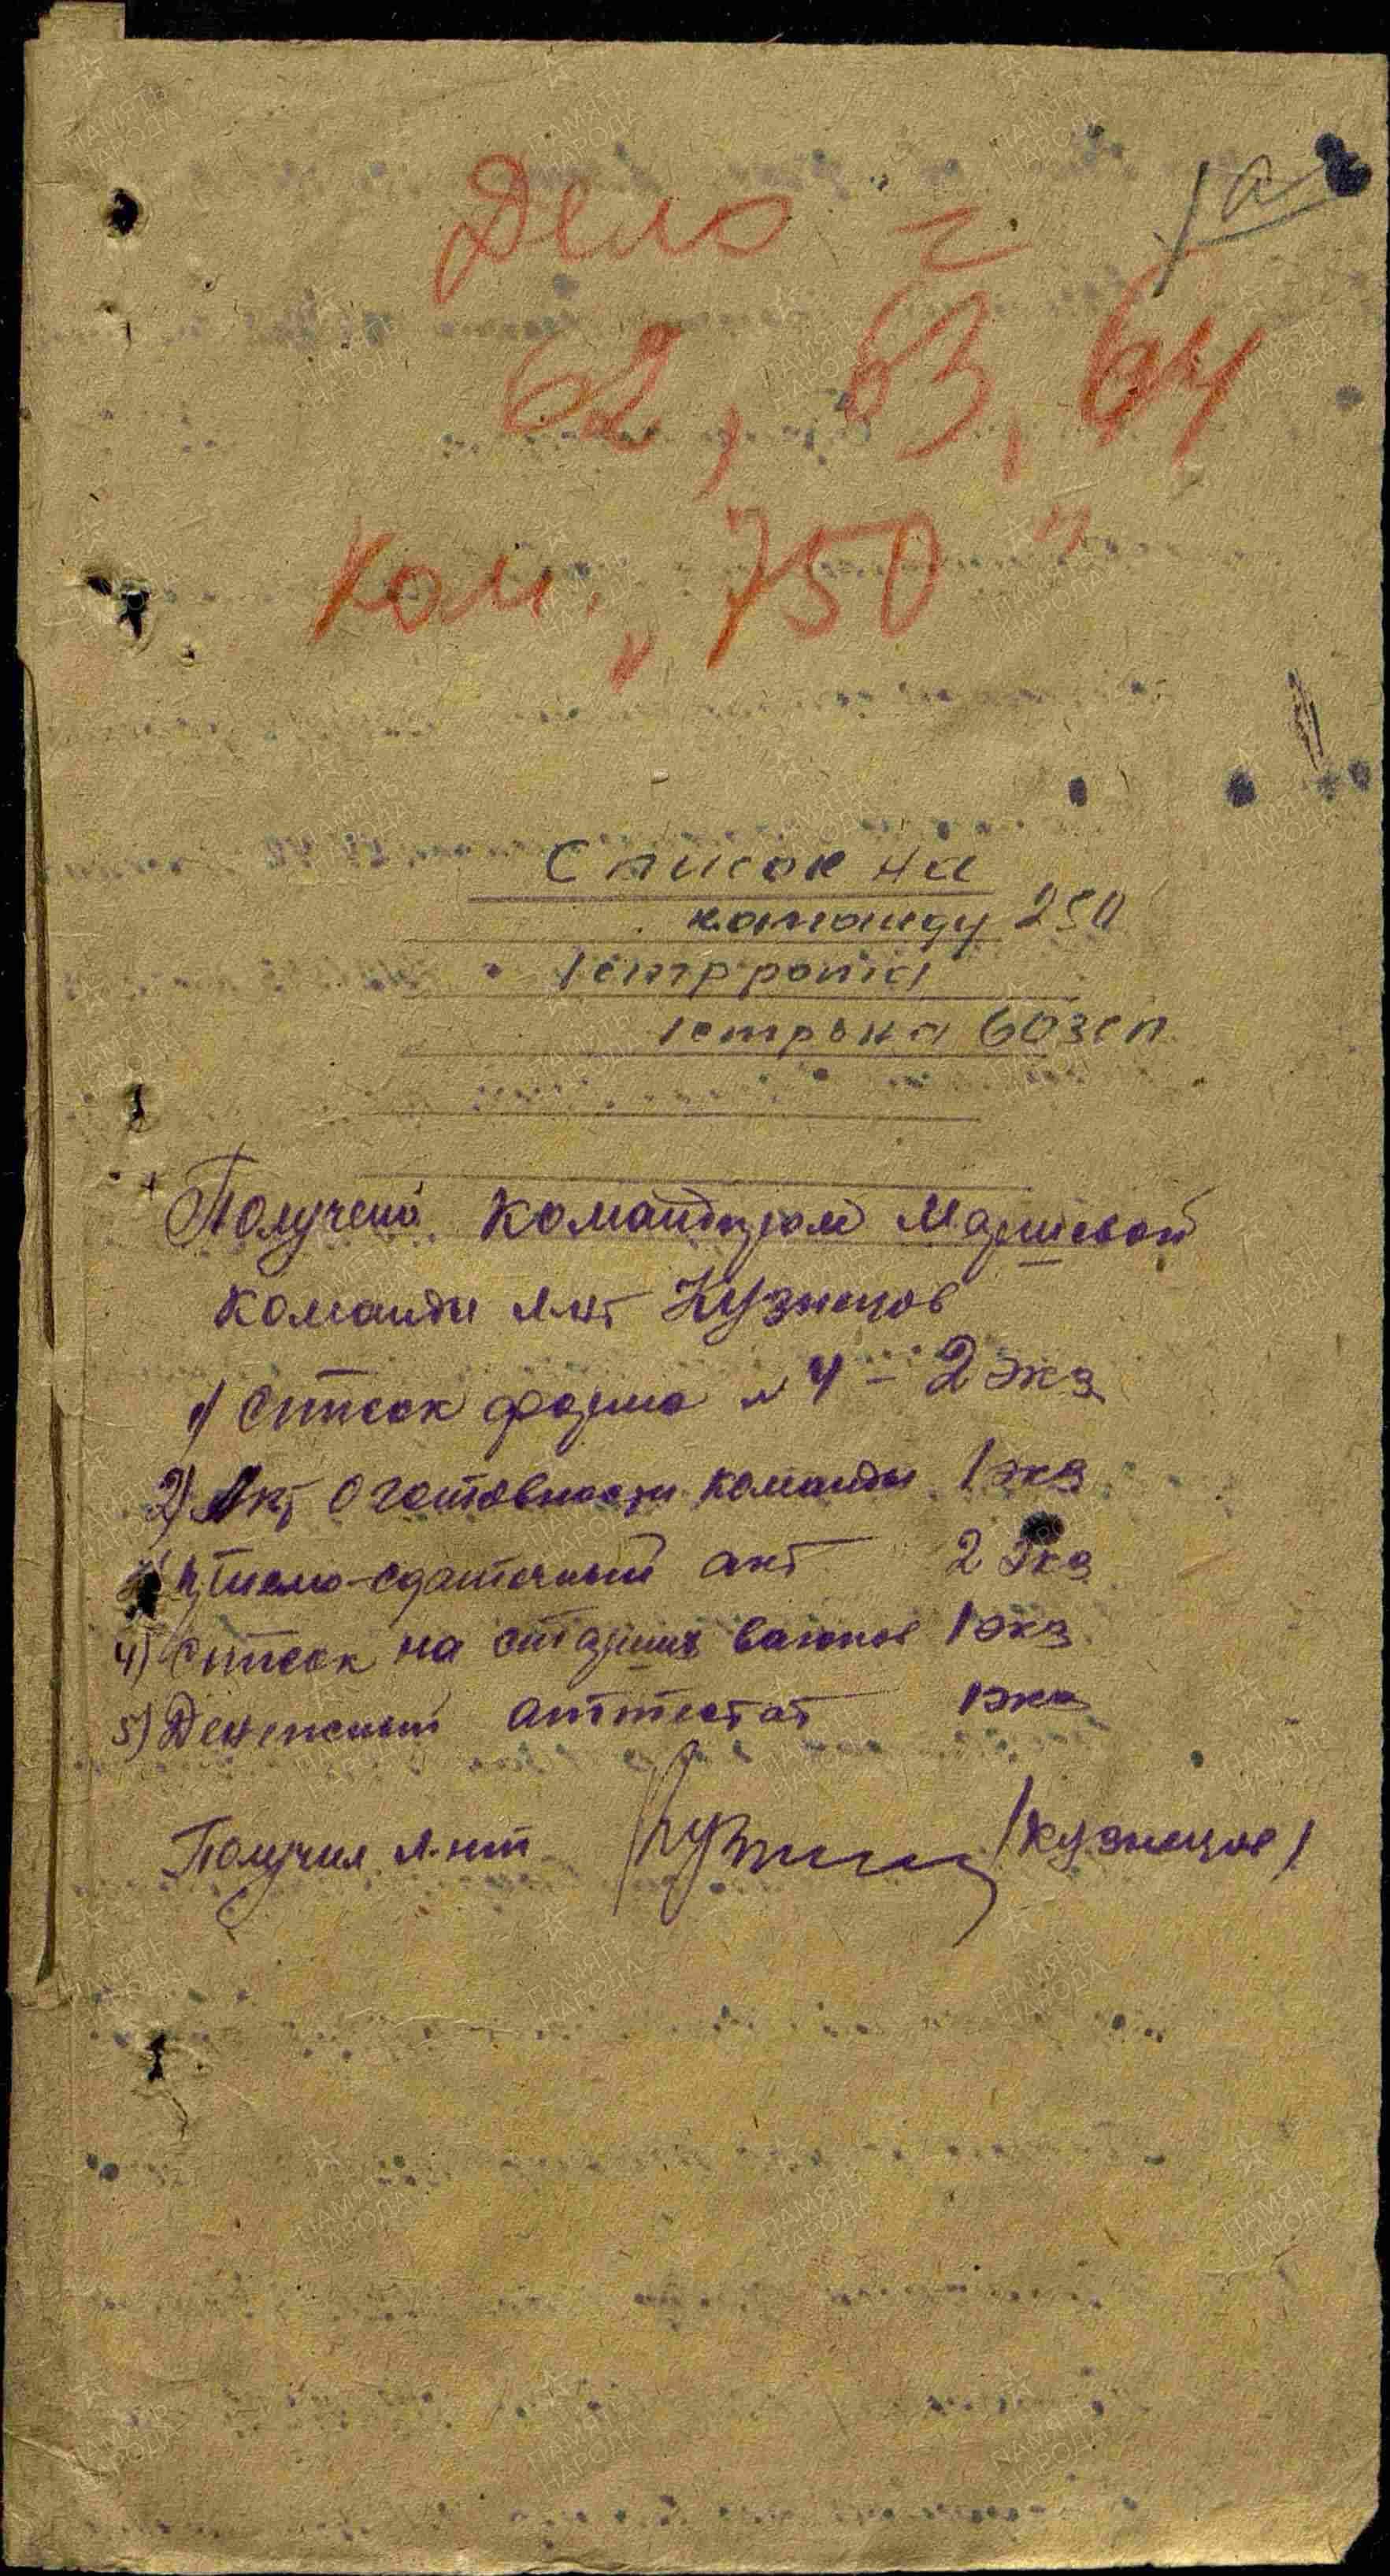 1а
Дело г
62, 63, 64
Ком. „750”
Список на
команду 250
1 стр рота
1 стр б-на 60 зсп
Получено командиром маршевой
команды л-нт Кузнецов
1) Список форма № 4 – 2 экз
2) Акт о готовности команды 1 экз
3) Приемо-сдаточный акт 2 экз
4) Список на старших вагонов 1 экз
5) Денежный аттестат 1 экз
Получил л-нт (Кузнецов)
ПАМЯТЬ НАРОДА